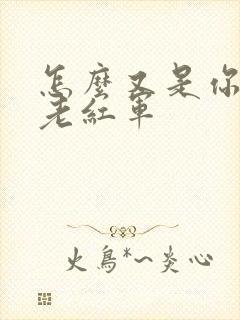 怎麼又是你
老紅軍
火鳥*~炎心